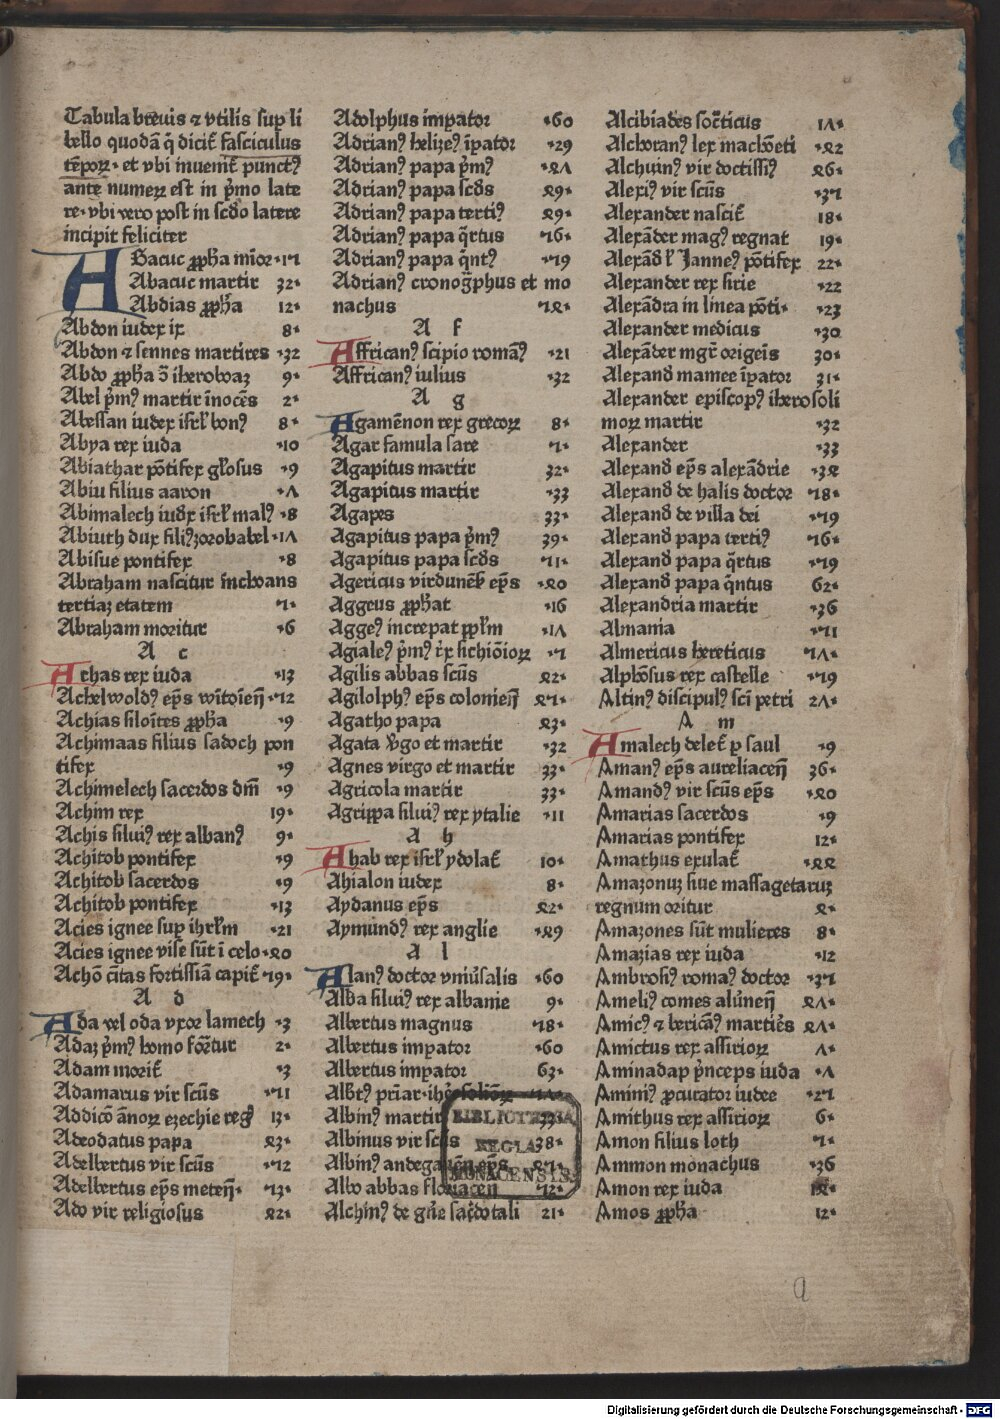 Tabula breuis ⁊ vtilis sup li
bello quodã q̃ dicit̃ fasciculus
tẽpoꝝ· et vbi inuenit̃ punctꝰ
ante numeꝝ est in p̃mo late
re· vbi vero post in scd̃o latere
incipit feliciter
ABacuc ꝓph̃a mĩor ·17
Abacuc martir 32·
Abdias ꝓph̃a 12·
Abdon iudex ix 8·
Abdon ⁊ sennes martires ·32
Abdo ꝓph̃a ↄ̃ iheroboaz 9·
Abel p̃mꝰ martir ĩnocẽs 2·
Abessan iudex isrł bonꝰ 8·
Abya rex iuda ·10
Abiathar põtifex gło̅sus ·9
Abiu filius aaron ·Λ
Abimalech iudx̃ isrł malꝰ ·8
Abiuth dux filiꝰ zorobabel ·1Λ
Abisue pontifex ·8
Abraham nascitur inchoans
tertiaz etatem ·7·
Abraham moritur ·6
A c
Achas rex iuda ·13
Achelwoldꝰ ep̃s wĩtoĩeñ ·72
Achias siloĩtes ꝓph̃a ·9
Achimaas filius sadoch pon
tifex ·9
Achimelech sacerdos dñi ·9
Achim rex 19·
Achis siluiꝰ rex albanꝰ 9·
Achitob pontifex ·9
Achitob sacerdos ·9
Achitob pontifex ·13
Acies ignee sup ihrłm ·21
Acies ignee vise sũt ĩ celo ·ꝶ0
Achõ cĩtas fortissiã capit̃ ·79·
A d
Ada vel oda vxor lamech ·3
Adaz p̃mꝰ homo for̃tur 2·
Adam morit̃ ·3
Adamarus vir scũs ·71
Addicõ ãnoꝝ ezechie regꝭ 13·
Adeodatus papa ꝶ3·
Adelbertus vir scũs ·72
Adelbertus ep̃s meteñ· ·73·
Ado vir religiosus ꝶ2·
Adolphus impator ·60
Adrianꝰ helizeꝰ ĩpator ·29
Adrianꝰ papa p̃mꝰ ·ꝶΛ
Adrianꝰ papa scd̃s ꝶ9·
Adrianꝰ papa tertiꝰ ꝶ9·
Adrianꝰ papa q̃rtus ·76·
Adrianꝰ papa q̃ntꝰ ·79
Adrianꝰ cronog̃phus et mo
nachus ·7ꝶ·
A f
Affricanꝰ scipio romãꝰ ·21
Affricanꝰ iulius ·32
A g
Agamẽnon rex grecoꝝ 8·
Agar famula sare ·7·
Agapitus martir 32·
Agapitus martir ·33
Agapes 33·
Agapitus papa p̃mꝰ 39·
Agapitus papa scd̃s ·71·
Agericus virdunẽs̃ ep̃s ·ꝶ0
Aggeus ꝓph̃at ·16
Aggeꝰ increpat ꝓpłm ·1Λ
Agialeꝰ p̃mꝰ r̃x sichiõioꝝ ·7
Agilis abbas scũs ꝶ2·
Agilolphꝰ ep̃s colonieñ ꝶ7·
Agatho papa ꝶ3·
Agata v̾go et martir ·32
Agnes virgo et martir 33·
Agricola martir 33·
Agrippa siluiꝰ rex ytalie ·11
A h
Ahab rex isrł ydolat̃ 10·
Ahialon iudex 8·
Aydanus ep̃s ꝶ2·
Aymundꝰ rex anglie ·ꝶ9
A l
Alanꝰ doctor vniũsalis ·60
Alba siluiꝰ rex albanie 9·
Albertus magnus ·78·
Albertus impator ·60
Albertus impator 63·
Albt̃ꝰ pr̃iar· iherosolioꝝ ·7Λ·
Albinꝰ martir 33·
Albinus vir scũs ·38·
Albinꝰ andegaueñ ep̃s ꝶ7·
Albo abbas floriaceñ ·72·
Alchinꝰ de gñe sacẽdotali 21·
BIBLIOTHECA
REGIA
MONACENSIS.
Alcibiades soc̃ticus 1Λ·
Alchoranꝰ lex machõeti ·ꝶ2
Alchuinꝰ vir doctissiꝰ ꝶ6·
Alexiꝰ vir scũs ·37
Alexander nascit̃ 18·
Alexãder magꝰ regnat 19·
Alexãd ł Janneꝰ põtifex 22·
Alexander rex sirie ·22
Alexãdra in linea põti· ·23
Alexander medicus ·30
Alexãder mgr̃ origeĩs 30·
Alexand mamee ĩpator 31·
Alexander episcopꝰ iherosoli
moꝝ martir ·32
Alexander ·33
Alexand ep̃s alexãdrie ·3ꝶ
Alexand de halis doctor ·78·
Alexand de villa dei ·79
Alexand papa tertiꝰ ·76·
Alexand papa q̃rtus ·79
Alexand papa q̃ntus 62·
Alexandria martir ·36
Almania ·71
Almericus hereticus ·7Λ·
Alphõsus rex castelle ·79
Altinꝰ discipulꝰ scĩ petri 2Λ·
A m
Amalech delet̃ p saul ·9
Amanꝰ ep̃s aureliaceñ 36·
Amandꝰ vir scũs ep̃s ·ꝶ0
Amarias sacerdos ·9
Amarias pontifex 12·
Amathus exulat̃ ·ꝶꝶ
Amazonuz siue massagetaruz
regnum oritur ꝶ·
Amazones sũt mulieres 8·
Amazias rex iuda ·12
Ambrosiꝰ romaꝰ doctor ·37
Ameliꝰ comes alũneñ ꝶΛ·
Amicꝰ ⁊ bericãꝰ martiẽs ꝶΛ·
Amictus rex assirioꝝ Λ·
Aminadap p̃nceps iuda ·Λ
Aminiꝰ ꝓcurator iudee ·27
Amithus rex assirioꝝ 6·
Amon filius loth ·7·
Ammon monachus ·36
Amon rex iuda 1ꝶ·
Amos ꝓph̃a 12·
a
Digitalisierung gefördert durch die Deutsche Forschungsgemeinschaft - DFG